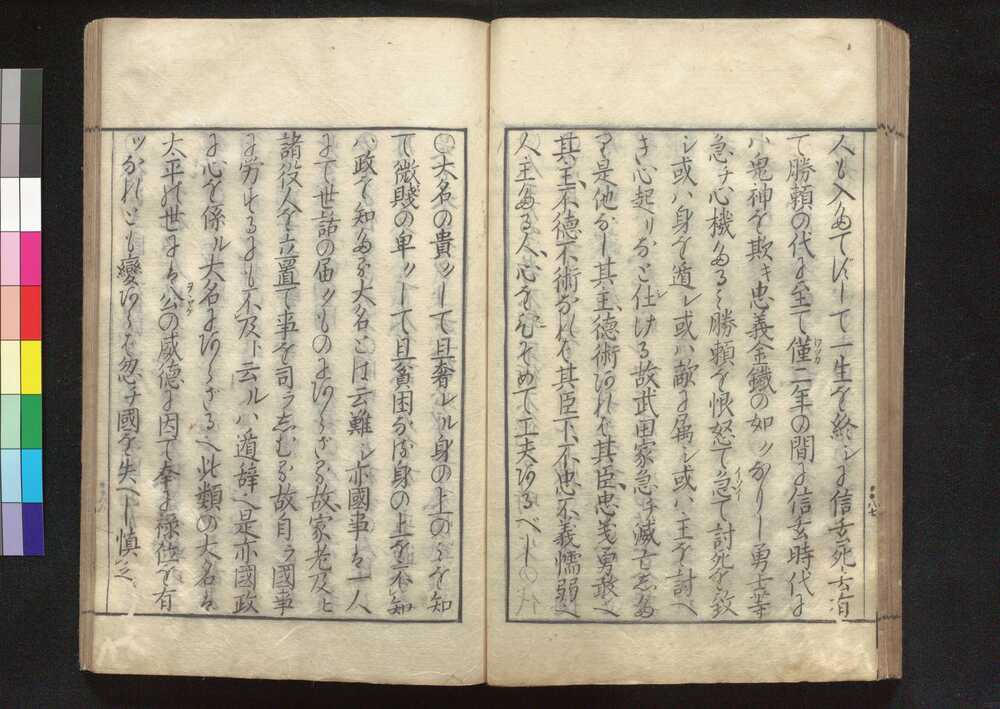 人も入まてにして一生を終シに信玄死去有
て勝頼の代に至て僅二年の間に信玄時代に
ハ鬼神を欺キ忠義金鐡の如ッなりし勇士等
急チ心機たる勝頼を恨怒て急て討死を致
シ或ハ身を遁レ或ハ敵に属シ或ハ王を討へ
き心起リなと仕ける故武田家急チ滅亡しぬ
是他なし其王徳術あれハ其臣忠義勇敢へ
其王不徳不術なれハ其臣下不忠不義懦弱へ
人主たる人心をひそめて工夫あるへし
大名の貴ッして且奢レル身の上のミを知
て微賤の卑ッして且貧困なる身の上を不知
ハ政を知たる大名とは云難シ亦國事は一人
にて世話の届ッものにあらさる故家老及ヒ
諸役人を立置て事を司ラしむる故自ラ國事
に労するにも不及ト云ルハ遁辞へ是亦國政
に心を係ル大名にあらさるへ此類の大名は
太平の世には公の威徳に因て奉に禄位を有
ッなれとも變あらハ忽チ國を失へし慎之